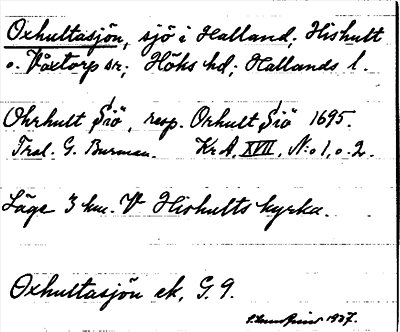 Oxhultasjön, sjö i Halland; Hishult
o. Våxtorp sr; Höks hd; Hallands l.
Ohrhult Siö, resp. Orhult Siö 1695.
Tral. G. Burman. Kr A, XVII, N:o 1, o. 2.
Läge 3 km. V Hishults kyrka.
Oxhultasjön ek. G. 9.
1937.